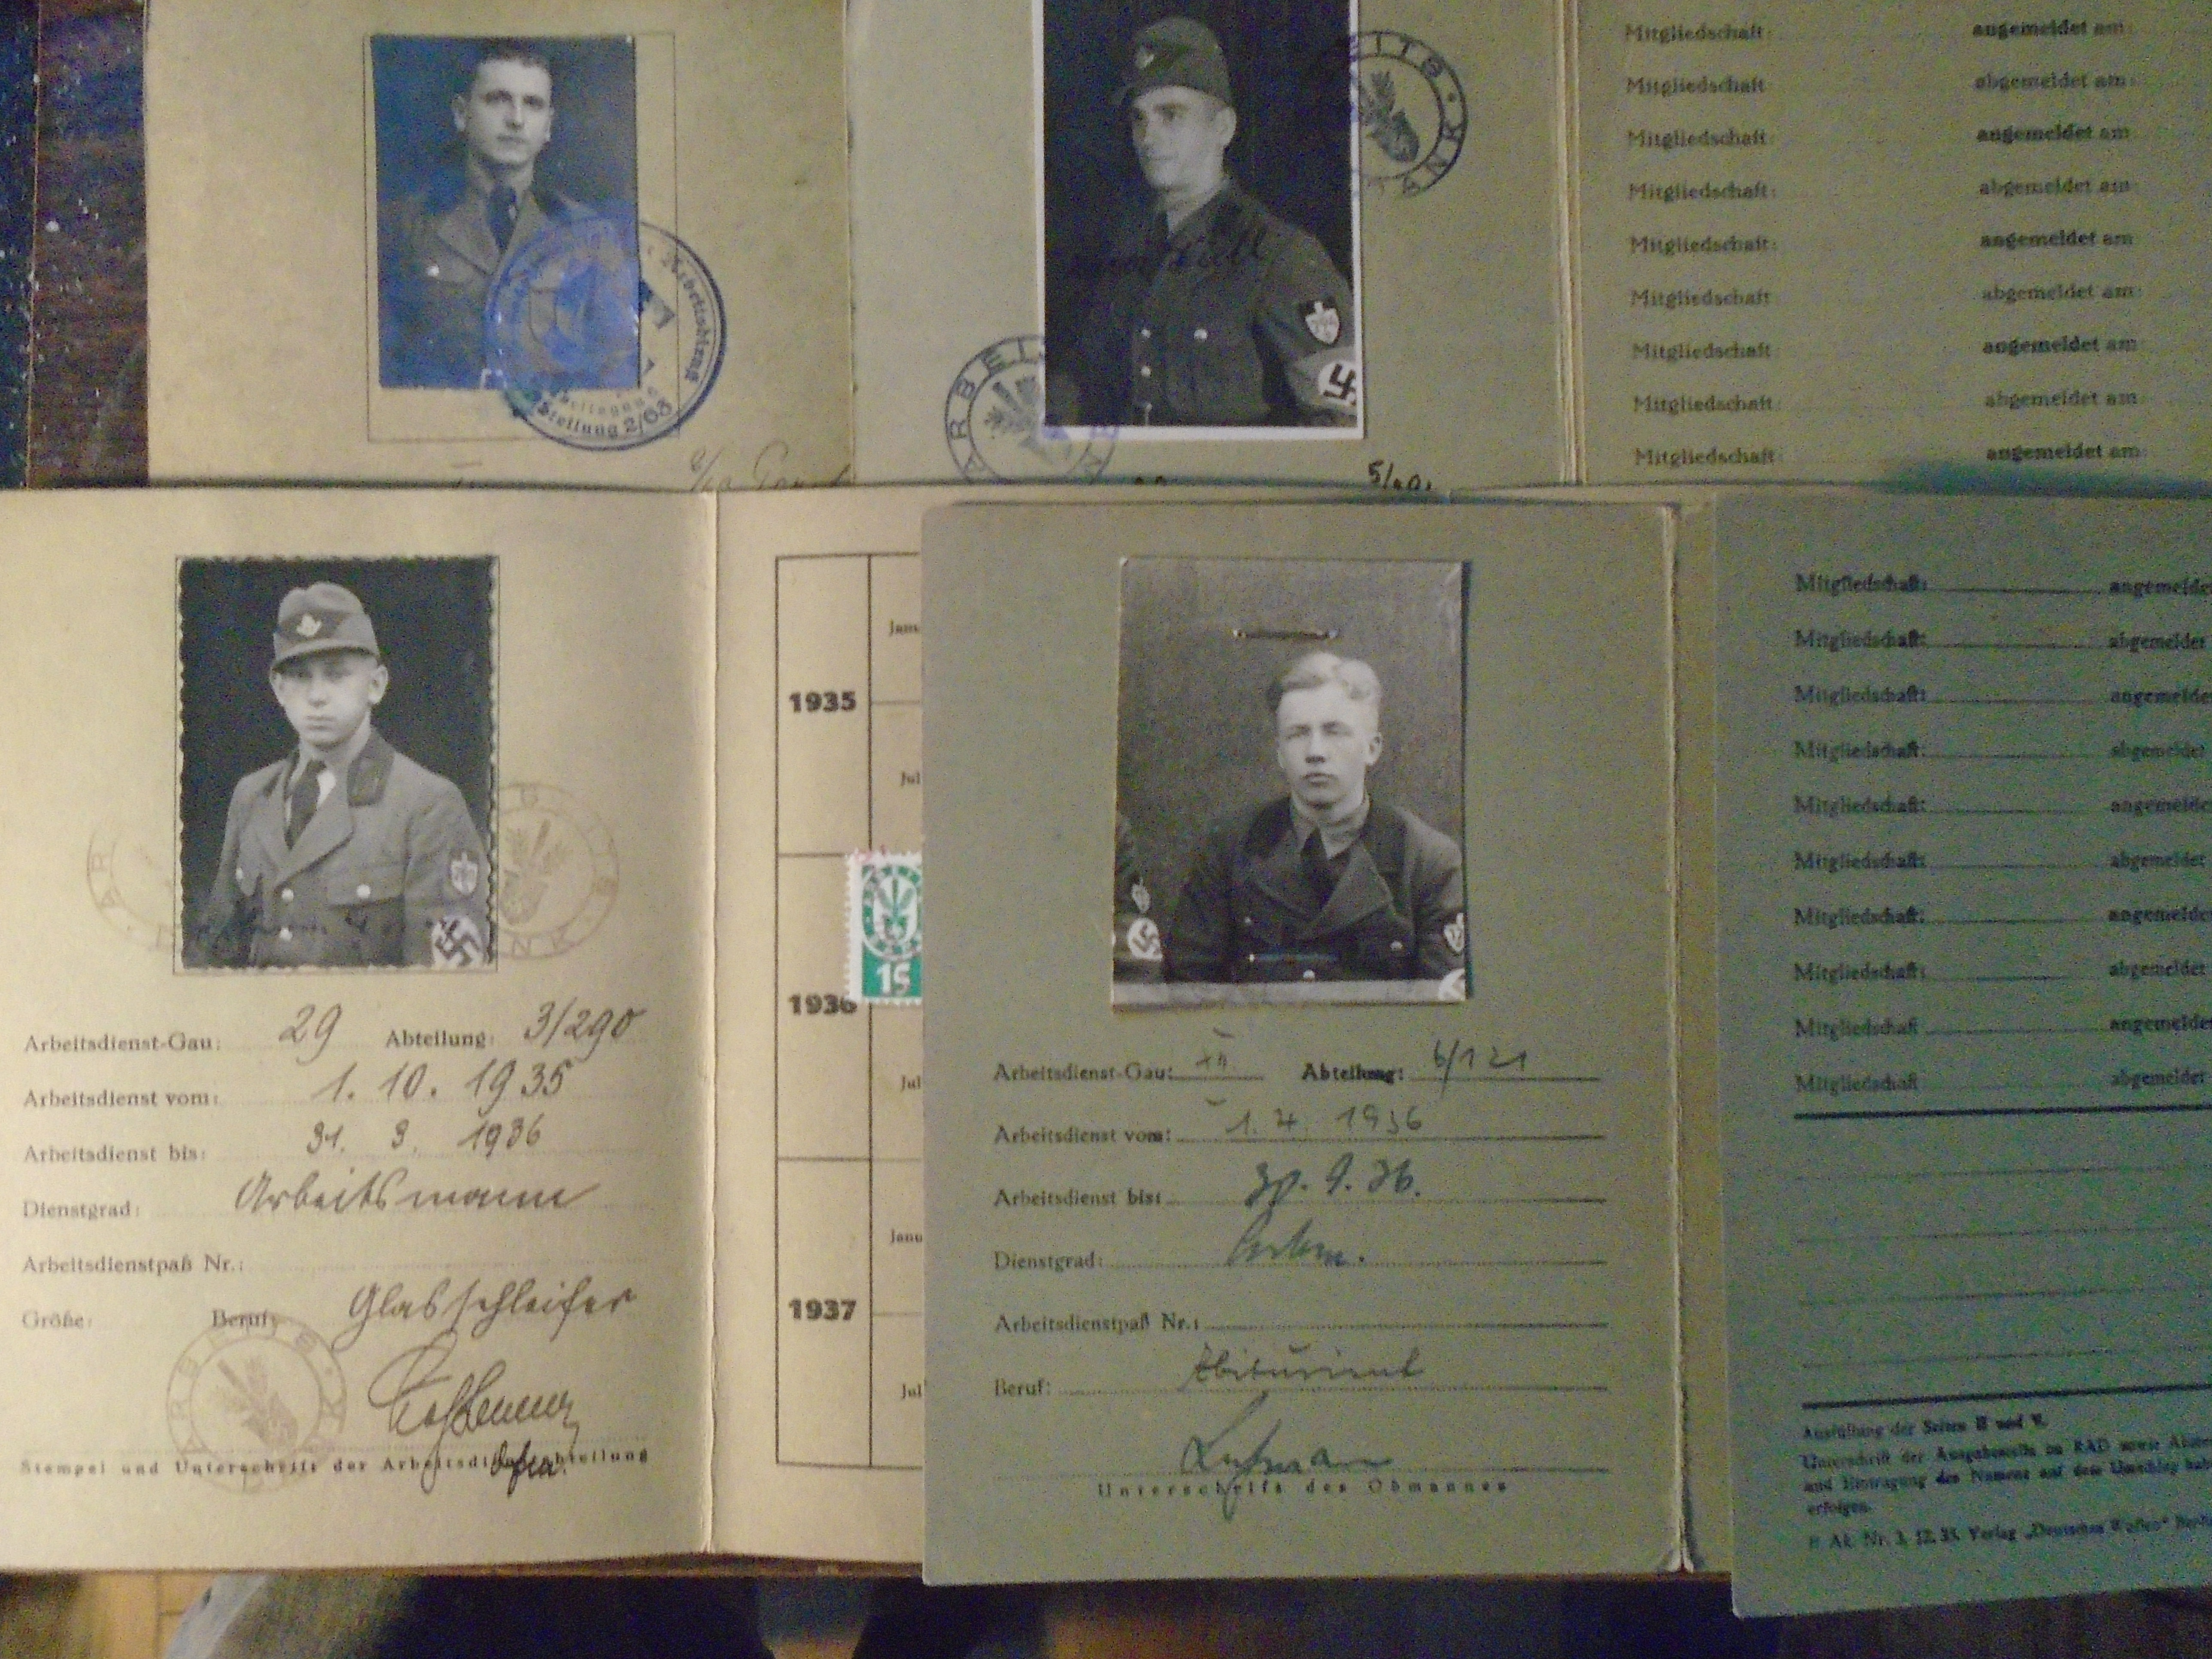 Mitgliedschaft: angemeldet am:
Mitgliedschaft abgemeldet am:
Mitgliedschaft: angemeldet am
Mitgliedschaft: abgemeldet am
Mitgliedschaft: angemeldet am
Mitgliedschaft abgemeldet am:
Mitgliedschaft: angemeldet am
Mitgliedschaft: abgemeldet am
Mitgliedschaft: angemeldet am
Abteilung 2/63
ARBEITS
5/
Arbeitsdienst-Gau: 29 Abteilung: 3/290
Arbeitsdienst vom: 1. 10. 1935
Arbeitsdienst bis: 31. 3. 1936
Dienstgrad: Arbeitsmann
Arbeitsdienstpaß Nr.:
Größe: Beruf: Glasschleifer
Stempel und Unterschrift der Arbeitsdienstabteilung
1935
Jul
1936
15
Jul
1937
Janu
Jul
Arbeitsdienst-Gau: XII Abteilung: 6/121
Arbeitsdienst vom: 1. 4. 1936
Arbeitsdienst bis: 30. 9. 36.
Dienstgrad: Arbm.
Arbeitsdienstpaß Nr.:
Beruf: Abiturient
Unterschrift des Obmannes
Mitgliedschaft: angemeldet
Mitgliedschaft: abgemeldet
Mitgliedschaft: angemeldet
Mitgliedschaft: abgemeldet
Mitgliedschaft: angemeldet
Mitgliedschaft: abgemeldet
Mitgliedschaft: angemeldet
Mitgliedschaft: abgemeldet
Mitgliedschaft angemeldet
Mitgliedschaft abgemeldet
Ausfüllung der Seiten II und V.
Unterschrift der Ausgabestelle im RAD sowie
und Eintragung des Namens auf dem Umschlag
erfolgen.
Verlag